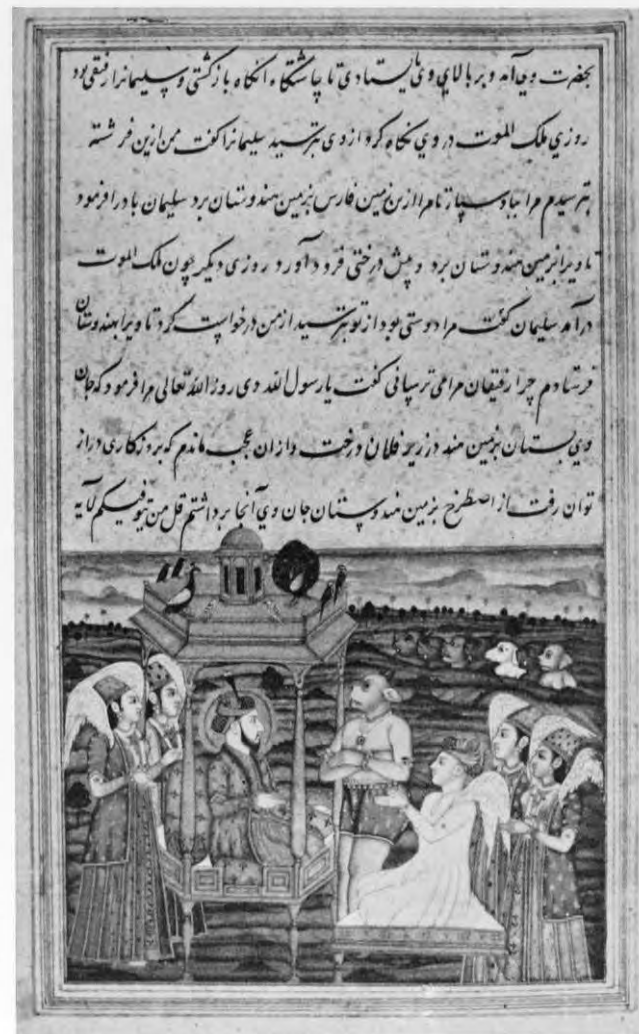 بحضرت وی آمد و بر بالای وی بایستادی تا چاشتگاه انگاه بازگشتی و سلیمانرا رفیقی بود
روزی ملک الموت در وی نگاه کرد از وی بترسید سلیمانرا گفت من ازین فرشته
بترسیدم مرا بباد سپار تا مرا از زمین فارس بزمین هندوستان برد سلیمان باد را فرمود
تا ویرا بزمین هندوستان برد و پیش درختی فرود آورد روزی دیگر چون ملک الموت
درآمد سلیمان گفت مرا دوستی بود از تو بترسید از من درخواست کرد تا ویرا بهندوستان
فرستادم چرا رفیقان مرا می ترسانی گفت یا رسول الله دی روز الله تعالی مرا فرمود که جان
وی بستان بزمین هند در زیر فلان درخت و از ان عجب ماندم که بروزکاری دراز
توان رفت از اصطرخ بزمین هندوستان جان وی آنجا برداشتم قل من یتوفیکم لآیه